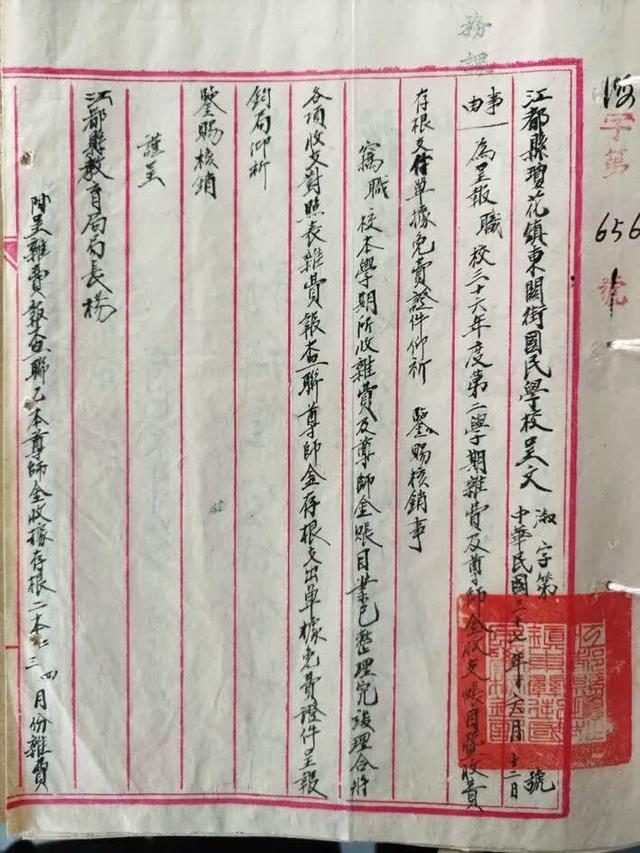 務課
字第
656
號
江都縣瓊花鎮東關街國民學校呈文
淑字第 號
中華民國三十七年六月十二日
事由
為呈報職校三十六年度第二學期雜費及尊師金收支帳目暨收費
存根支付單據免費證件仰祈 鑒賜核銷事
竊職校本學期所收雜費及尊師金賬目業已整理完竣理合將
各項收支對照表雜費報查聯尊師金存根支出單據免費證件呈報
鈞局仰祈
鑒賜核銷
謹呈
江都縣教育局局長楊
附呈雜費報查聯乙本尊師金收據存根二本二三四月份雜費